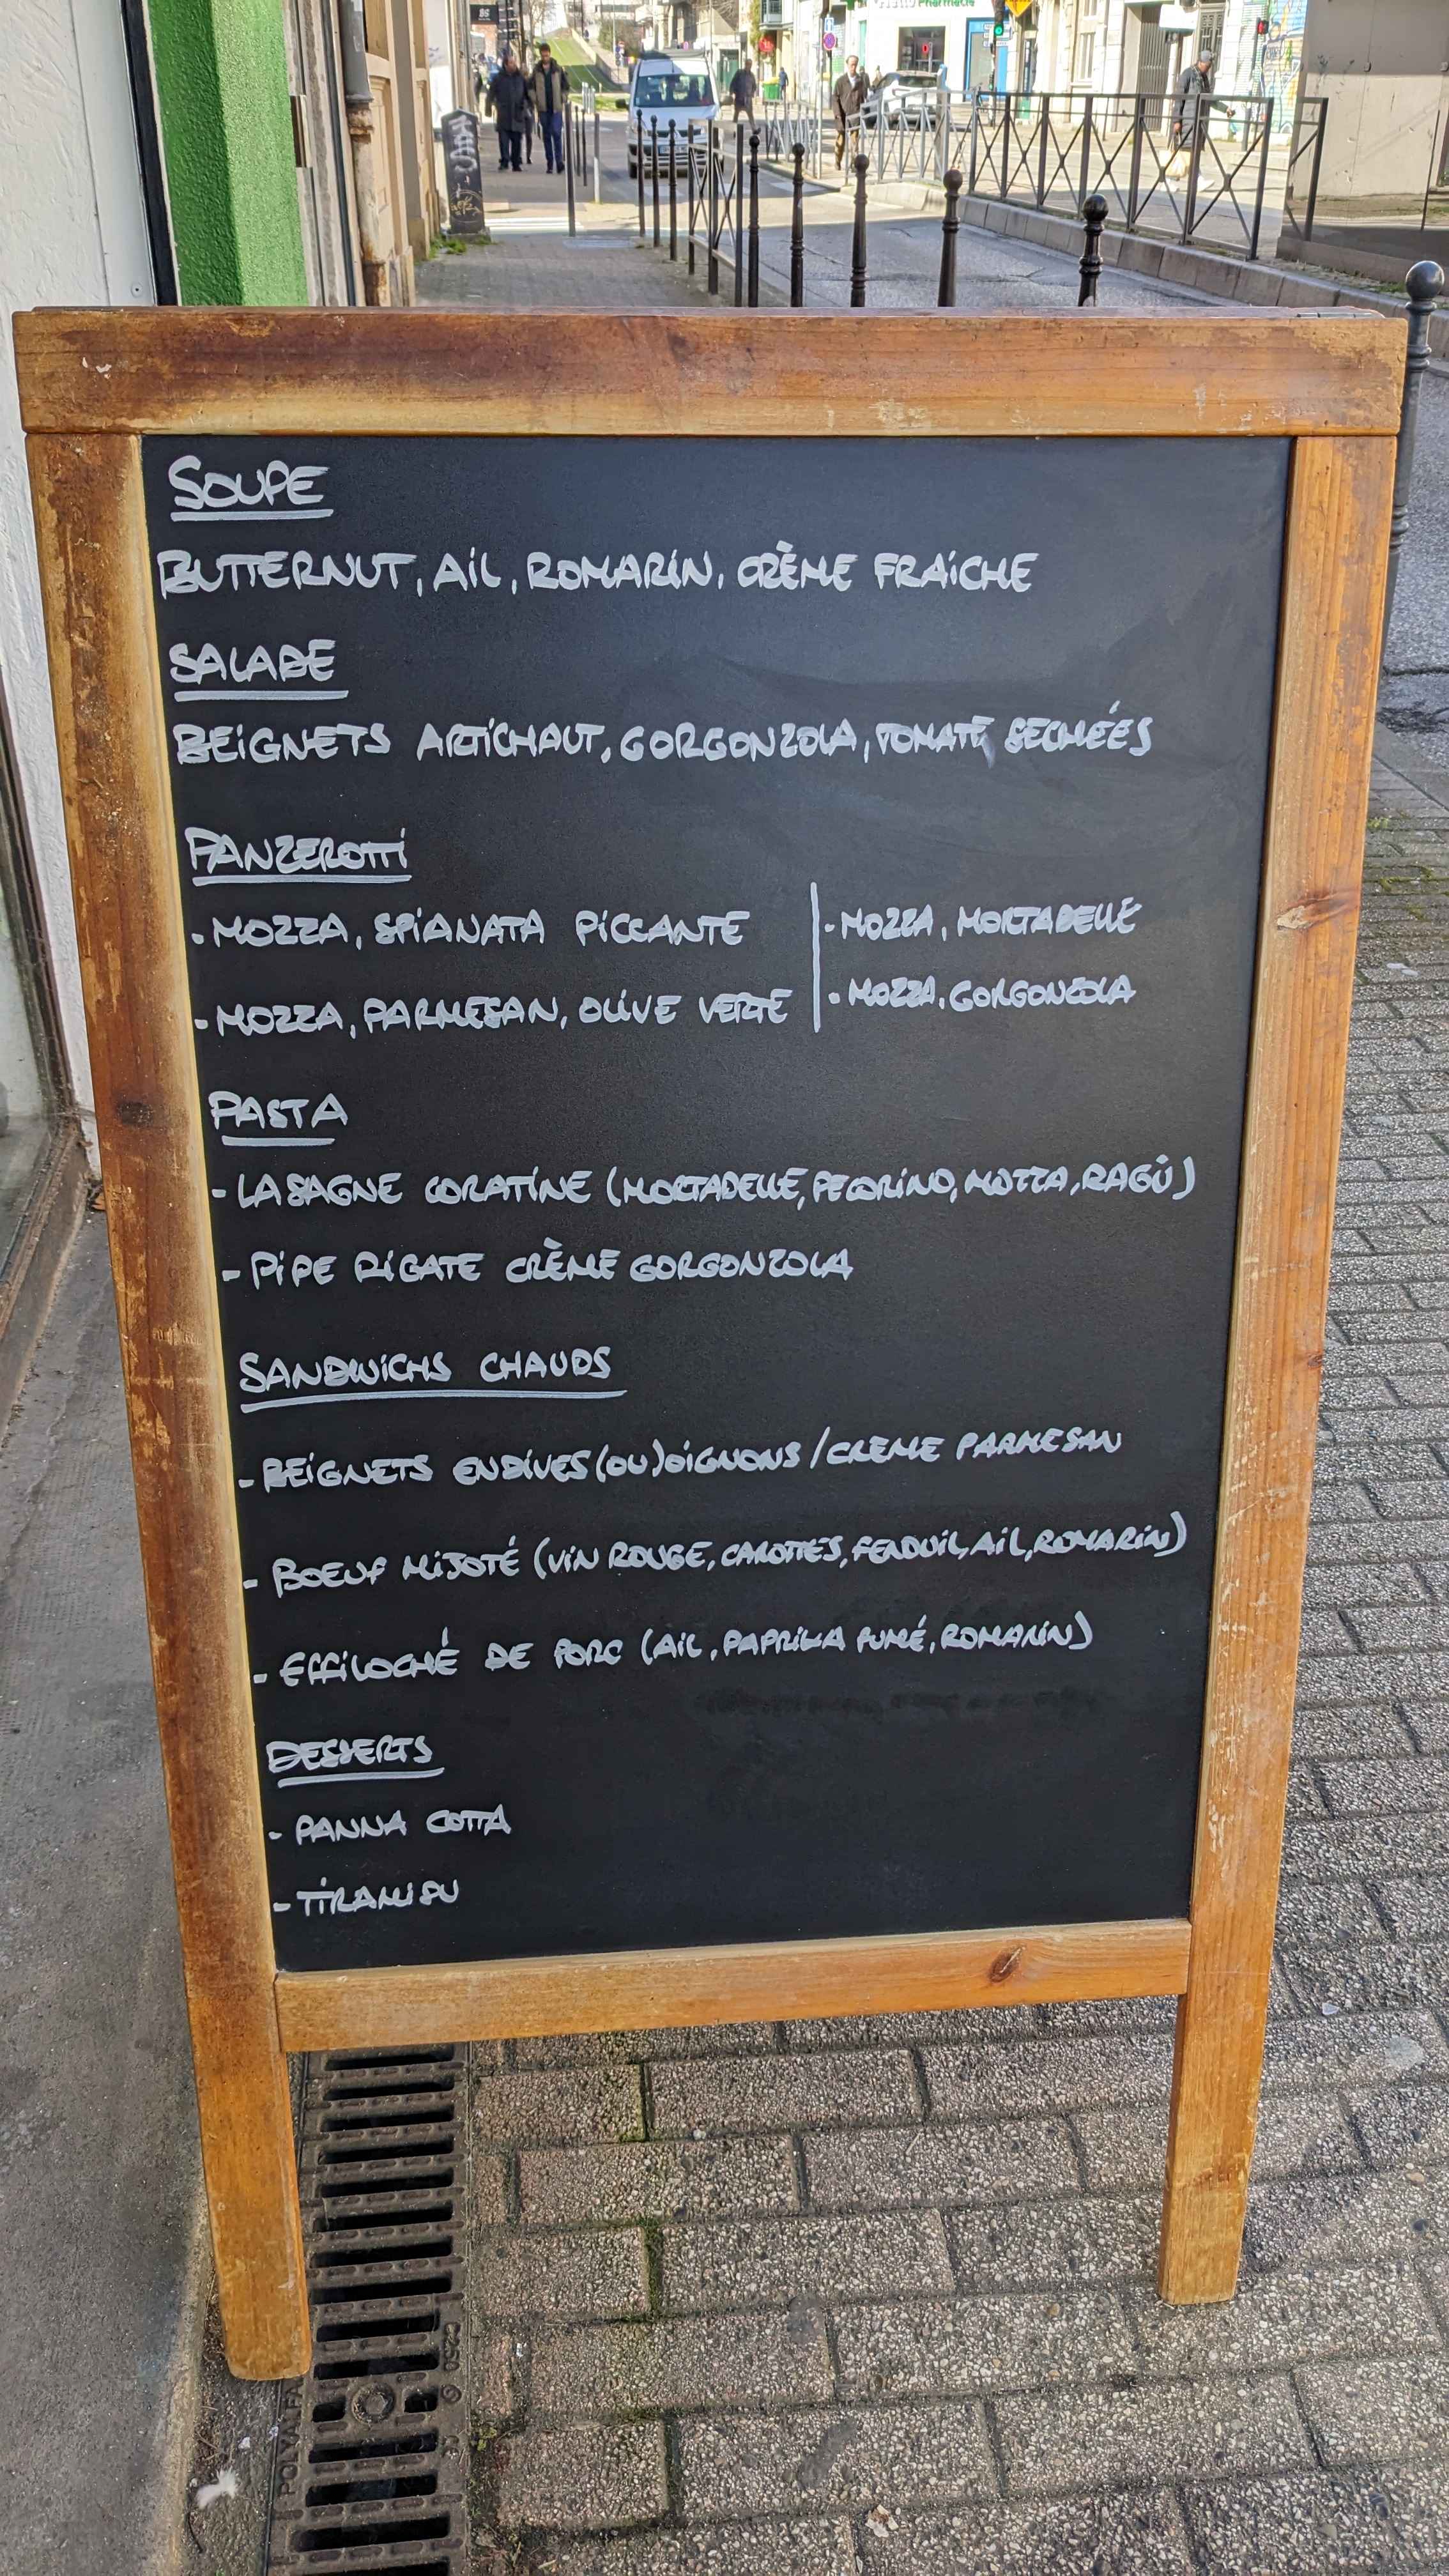 Pharmacie
SOUPE
BUTTERNUT, AIL, ROMARIN, CRÈME FRAICHE
SALADE
BEIGNETS ARTICHAUT, GORGONZOLA, TOMATE SECHÉES
PANZEROTTI
. MOZZA, SPIANATA PICCANTE
. MOZZA, PARMESAN, OLIVE VERTE
. MOZZA, MORTADELLE
. MOZZA, GORGONZOLA
PASTA
- LASAGNE CORATINE (MORTADELLE, PECORINO, MOZZA, RAGÙ)
- PIPE RIGATE CRÈME GORGONZOLA
SANDWICHS CHAUDS
- BEIGNETS ENDIVES (OU) OIGNONS / CREME PARMESAN
- BOEUF MIJOTÉ (VIN ROUGE, CAROTTES, FENOUIL, AIL, ROMARIN)
- EFFILOCHÉ DE PORC (AIL, PAPRIKA FUMÉ, ROMARIN)
DESSERTS
- PANNA COTTA
- TIRAMISU
C250